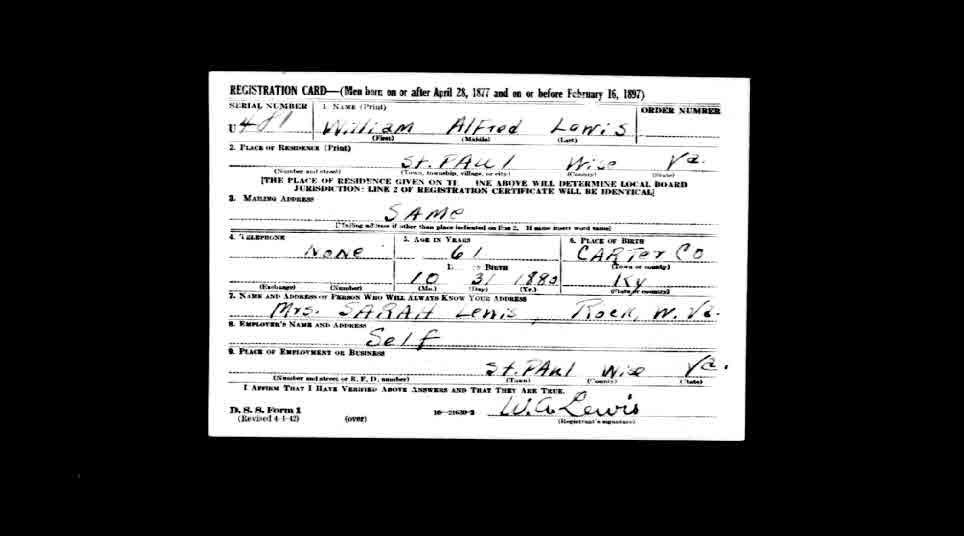 REGISTRATION CARD—(Men born on or after April 28, 1877 and on or before February 16, 1897)
SERIAL NUMBER 1. NAME (Print) ORDER NUMBER
U 481 William Alfred Lewis
(First) (Middle) (Last)
2. PLACE OF RESIDENCE (Print)
St. PAul Wise Va.
(Number and street) (Town, township, village, or city) (County) (State)
[THE PLACE OF RESIDENCE GIVEN ON INE ABOVE WILL DETERMINE LOCAL BOARD
JURISDICTION; LINE 2 OF REGISTRATION CERTIFICATE WILL BE IDENTICAL]
3. MAILING ADDRESS
SAMe
[Mailing address if other than place indicated on line 2. If same insert word same]
4. TELEPHONE 5. AGE IN YEARS 6. PLACE OF BIRTH
None 61 CARTer CO
BIRTH (Town or county)
10 31 1880 Ky
(Exchange) (Number) (Mo.) (Day) (Yr.) (State or country)
7. NAME AND ADDRESS OF PERSON WHO WILL ALWAYS KNOW YOUR ADDRESS
Mrs. SARAH Lewis, Rock, W. Va.
8. EMPLOYER'S NAME AND ADDRESS
Self
9. PLACE OF EMPLOYMENT OR BUSINESS
St. PAul Wise Va.
(Number and street or R. F. D. number) (Town) (County) (State)
I AFFIRM THAT I HAVE VERIFIED ABOVE ANSWERS AND THAT THEY ARE TRUE.
D. S. S. Form 1
(Revised 4-1-42) (over) 16—21630-2 W. A. Lewis
(Registrant's signature)